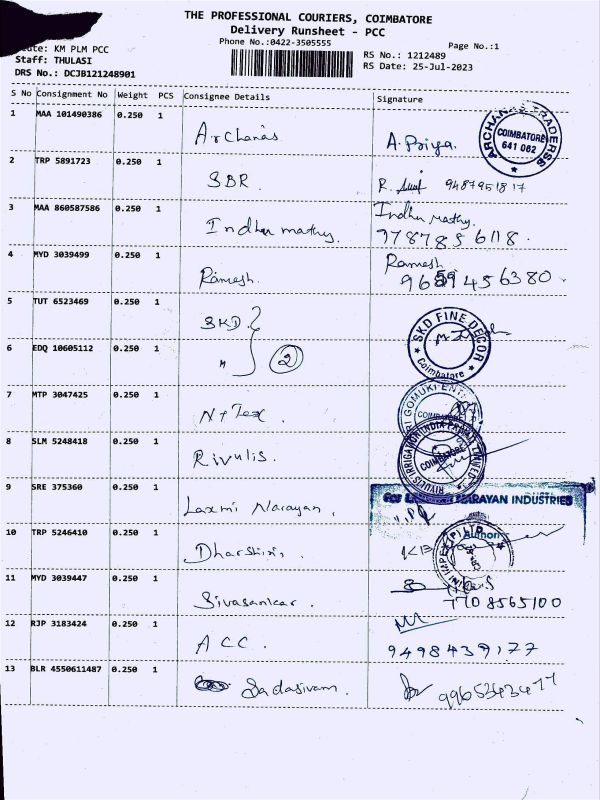 THE PROFESSIONAL COURIERS, COIMBATORE
Delivery Runsheet - PCC
Phone No.:0422-3505555
Page No.:1
KM PLM PCC
RS No.: 1212489
Staff: THULASI
RS Date: 25-Jul-2023
DRS No.: DCJB121248901
S No Consignment No Weight PCS Consignee Details Signature
1 MAA 101490386 0.250 1 Archanas A. Priya. ARCHANAS TRADERS COIMBATORE 641 062
2 TRP 5891723 0.250 1 SBR. R. 9487951817
3 MAA 860587586 0.250 1 Indhu mathy. Indhu mathy.
9787856118.
4 MYD 3039499 0.250 1 Ramesh. Ramesh
9659456380
5 TUT 6523469 0.250 1 SKD SKD FINE DECOR Coimbatore
6 EDQ 10605112 0.250 1 " 2
7 MTP 3047425 0.250 1 N+Tex GOMUKI COIMBATORE
8 SLM 5248418 0.250 1 Rivulis. RIVULIS IRRIGATION INDIA PRIVATE LIMITED COIMBATORE
9 SRE 375360 0.250 1 Laxmi Narayan. For LAXMI NARAYAN INDUSTRIES
10 TRP 5246410 0.250 1 Dharshini.
11 MYD 3039447 0.250 1 Sivasankar.
7708565100
12 RJP 3183424 0.250 1 ACC. 9498439177
13 BLR 4550611487 0.250 1 Sadasivam. 9965343477